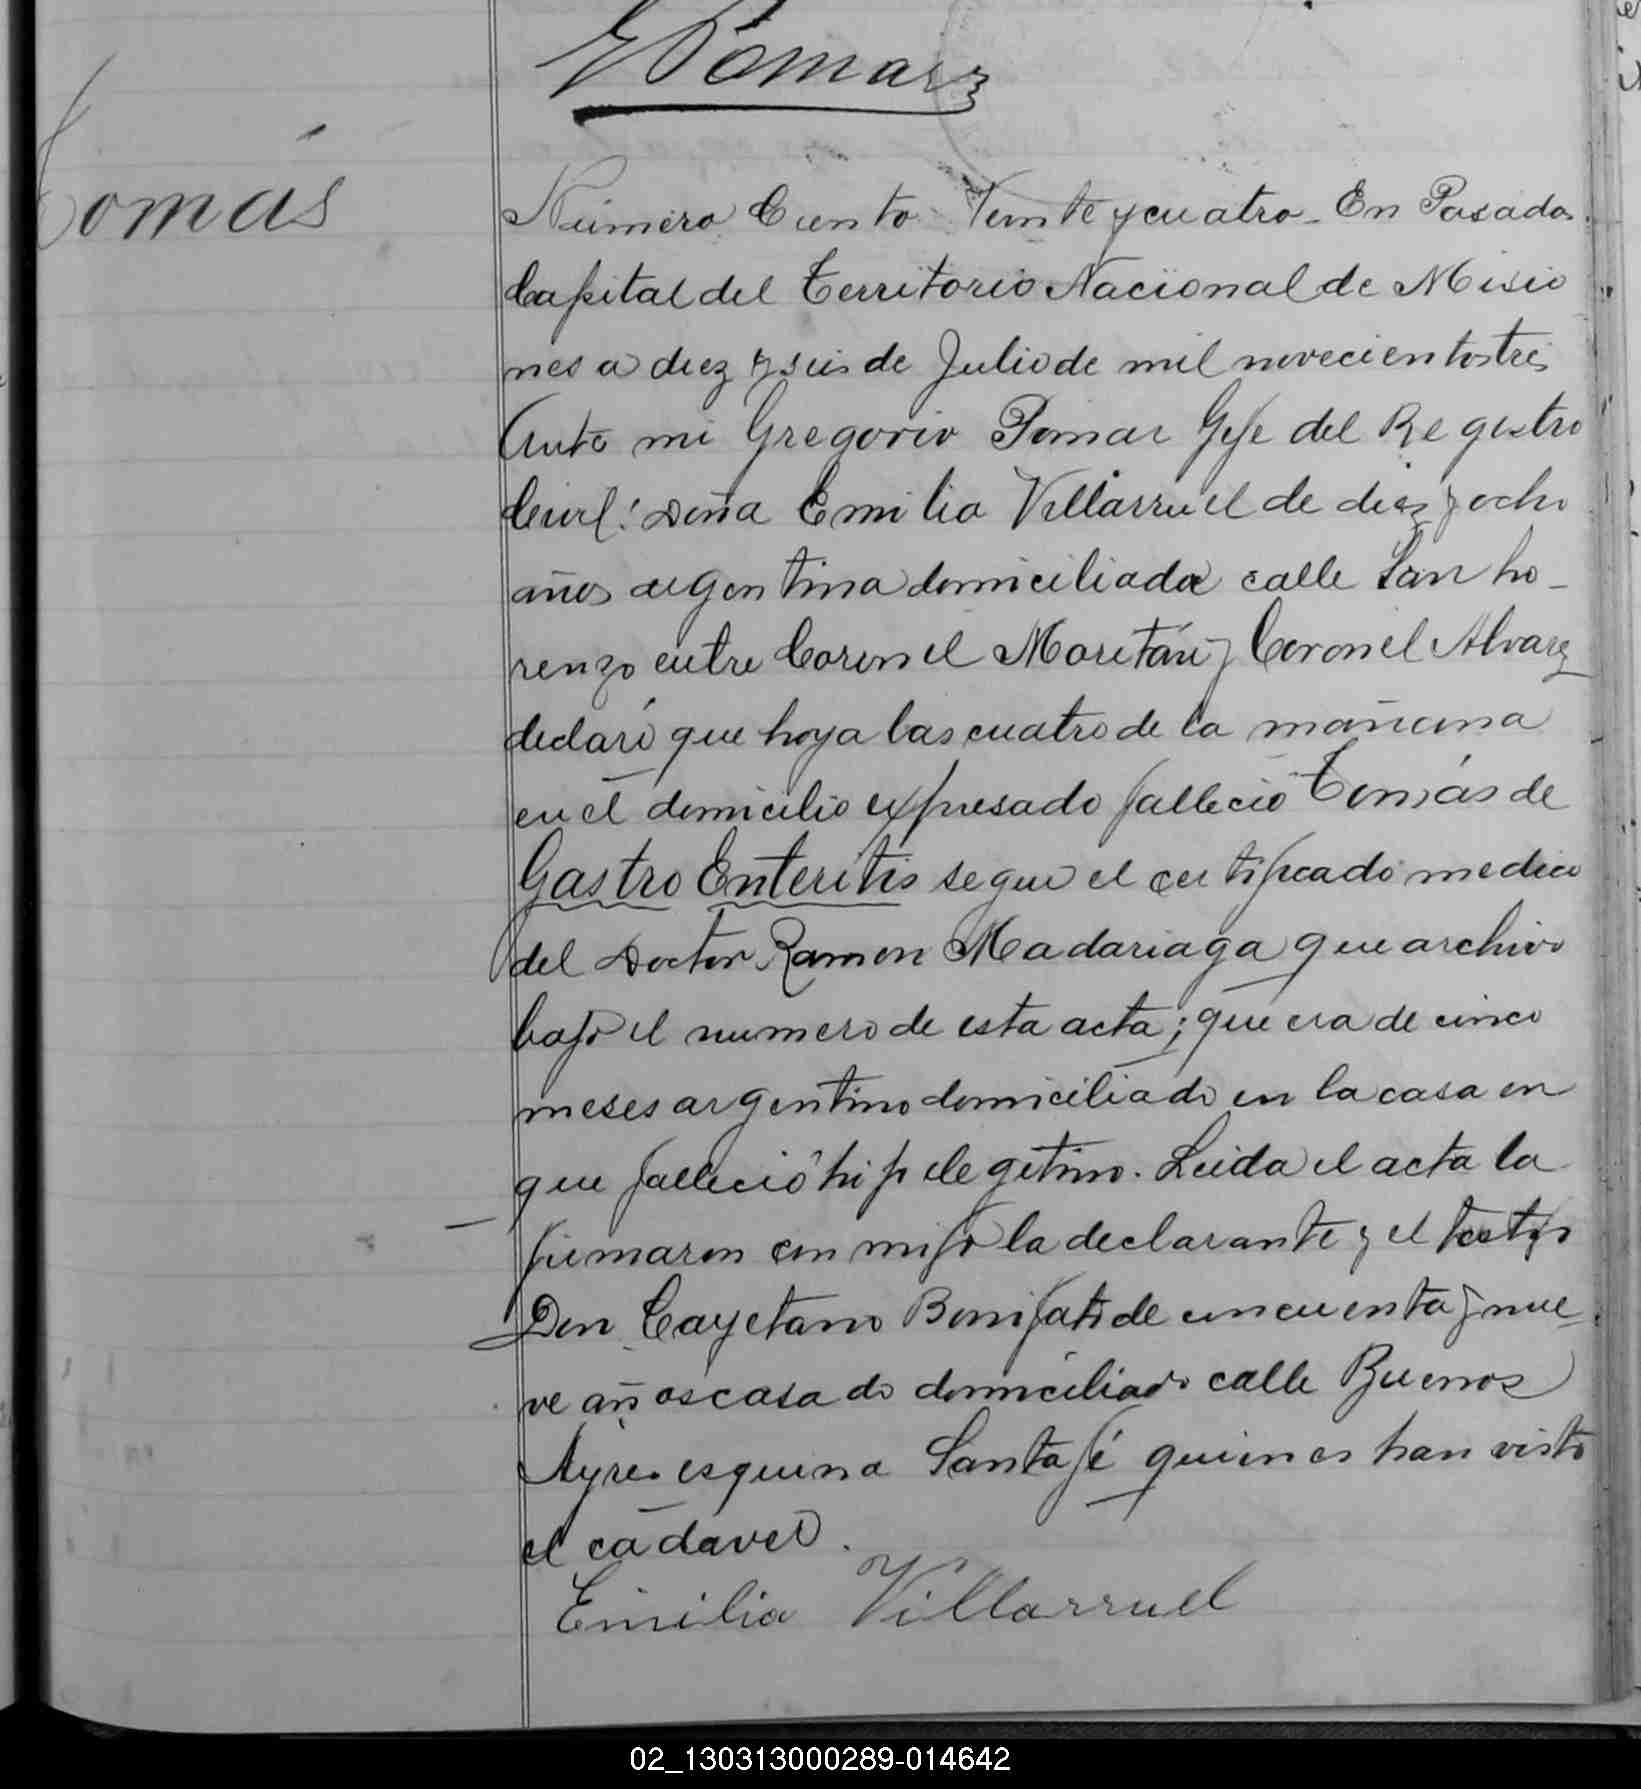 G Pomar
Tomás
Número Ciento Veinte y cuatro - En Posadas
Capital del Territorio Nacional de Misio
nes a diez y seis de Julio de mil novecientos tres
Ante mi Gregorio Pomar Gefe del Registro
Civil: Doña Emilia Villarruel de diez y ocho
años argentina domiciliada calle San Lo-
renzo entre Coronel Moritán y Coronel Alvarez
declaró que hoy a las cuatro de la mañana
en el domicilio expresado falleció Tomás de
Gastro Enteritis segun el certificado medico
del Doctor Ramon Madariaga que archivo
bajo el numero de esta acta; que era de cinco
meses argentino domiciliado en la casa en
que falleció hijo ilegitimo. Leida el acta la
firmaron conmigo la declarante y el testigo
Don Cayetano Bonifati de cincuenta y nue-
ve años casado domiciliado calle Buenos
Ayres esquina Santa fé quienes han visto
el cadaver.
Emilia Villarruel
02_130313000289-014642